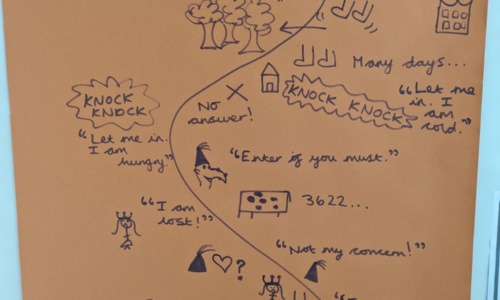 Many days...
KNOCK KNOCK
"Let me
in. I
am
cold."
KNOCK
KNOCK
No
answer!
"Let me in.
I am
hungry."
"Enter if you must."
"I am
lost!"
3622...
"Not my concern!"
?